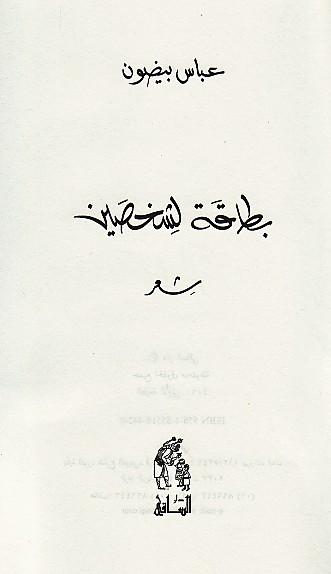 عباس بيضون
بطاقة لشخصين
شعر
الساقي